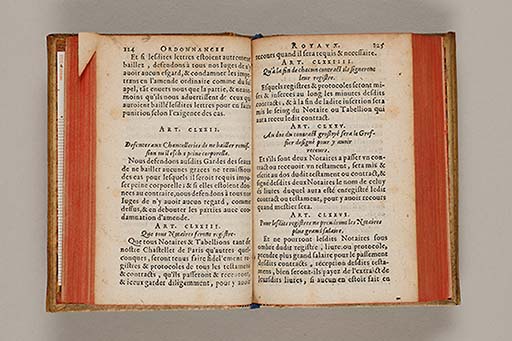 124 ORDONNANCES
Et si lesdites lettres estoient autrement
bailler, defendons à tous nos Iuges de n'y
auoir aucun esgard, & condamner les impe-
trans en l'amende ordinaire comme du fol
apel, tãt enuers nous que la partie, & neant-
moins qu'ils nous aduertissent de ceux qui
auroient baillé lesdites lettres pour en faire
punition selon l'exigence des cas.
ART. CLXXII.
Defences aux Chancelleries de ne bailler remis-
sion où il eschet peine corporelle.
Nous defendons ausdits Gardes des seaux
de ne bailler aucunes graces ne remissions
des cas pour lesquels il seroit requis impo-
ser peine corporelle: & si elles estoient don-
nees au contraire, nous defendons à tous nos
Iuges de n'y auoir aucun regard, comme
dessus, & en debouter les parties auec con-
damnation d'amende.
ART. CLXXIII.
Que tous Notaires feront registre.
Que tous Notaires & Tabellions tant de
nostre Chastellet de Paris qu'autres quel-
conques, seront tenus faire fidelement re-
gistres & protocoles de tous les testamens
& contracts, qu'ils passeront & receuront,
& iceux garder diligemment, pour y auoir
ROYAVX. 125
recours quand il sera requis & necessaire.
ART. CLXXIIII.
Qu'à la fin de chacun contract ils signeront
leur registre.
Esquels registres & protocoles seront mi-
ses & inserees au long les minutes desdits
contracts, & à la fin de ladite insertion sera
mis le seing du Notaire ou Tabellion qui
aura receu ledit contract.
ART. CLXXV.
Au dos du contract grossoyé sera le Gref-
fier designé pour y auoir
recours.
Et s'ils sont deux Notaires à passer vn con-
tract ou receuoir vn testament, sera mis &
escrit au dos dudit testament ou contract, &
signé desdits deux Notaires le nom de celuy
és liures duquel aura esté enregistré ledit
contract ou testament, pour y auoir recours
quand mestier sera.
ART. CLXXVI.
Pour lesdits registres ne prendront les Notaires
plus grand salaire.
Et ne pourront lesdits Notaires sous
ombre dudit registre, liure, ou protocoles,
prendre plus grand salaire pour le passement
desdits contracts, reception desdits testa-
mens, bien seront-ils payez de l'extraict de
leursdits liures, si aucun en estoit fait en